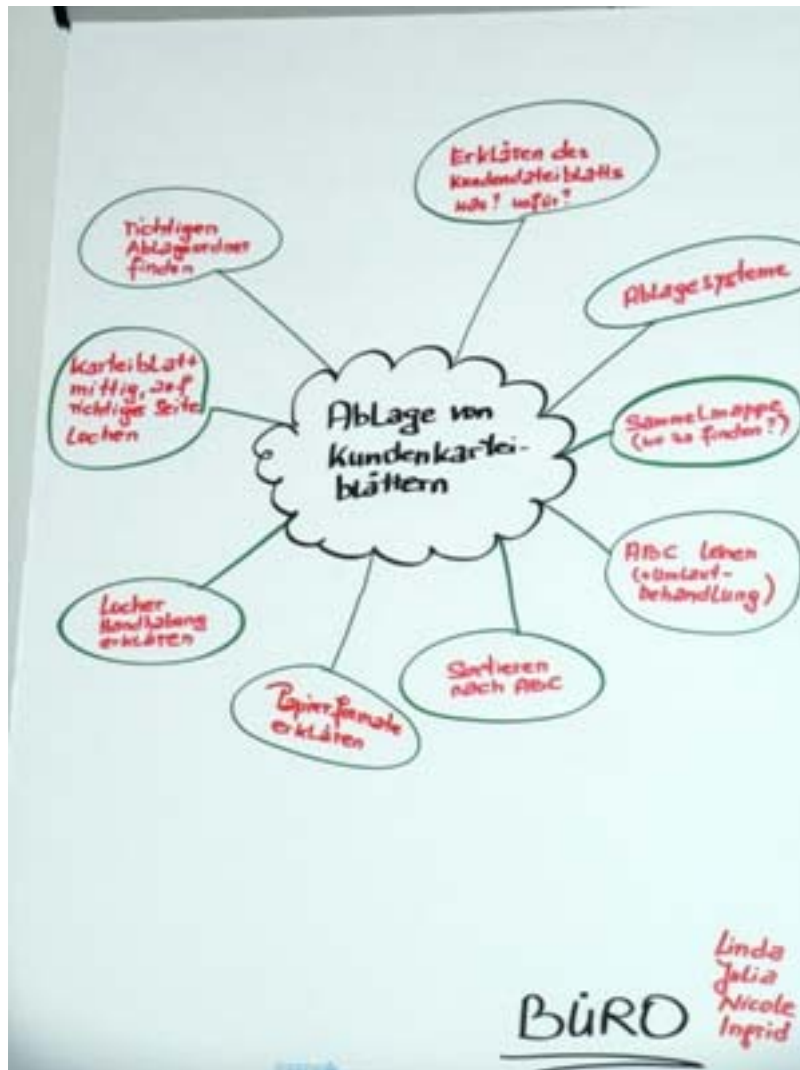 Ablage von
Kundenkartei-
blättern
Erklären des
Kundendateiblatts
was? wofür?
Ablagesysteme
Sammelmappe
(wo zu finden?)
ABC lehren
(+Umlaut-
behandlung)
Sortieren
nach ABC
Papierformate
erklären
Locher
Handhabung
erklären
Karteiblatt
mittig, auf
richtige Seite
Lochen
richtigen
Ablageordner
finden
BÜRO
Linda
Julia
Nicole
Ingrid